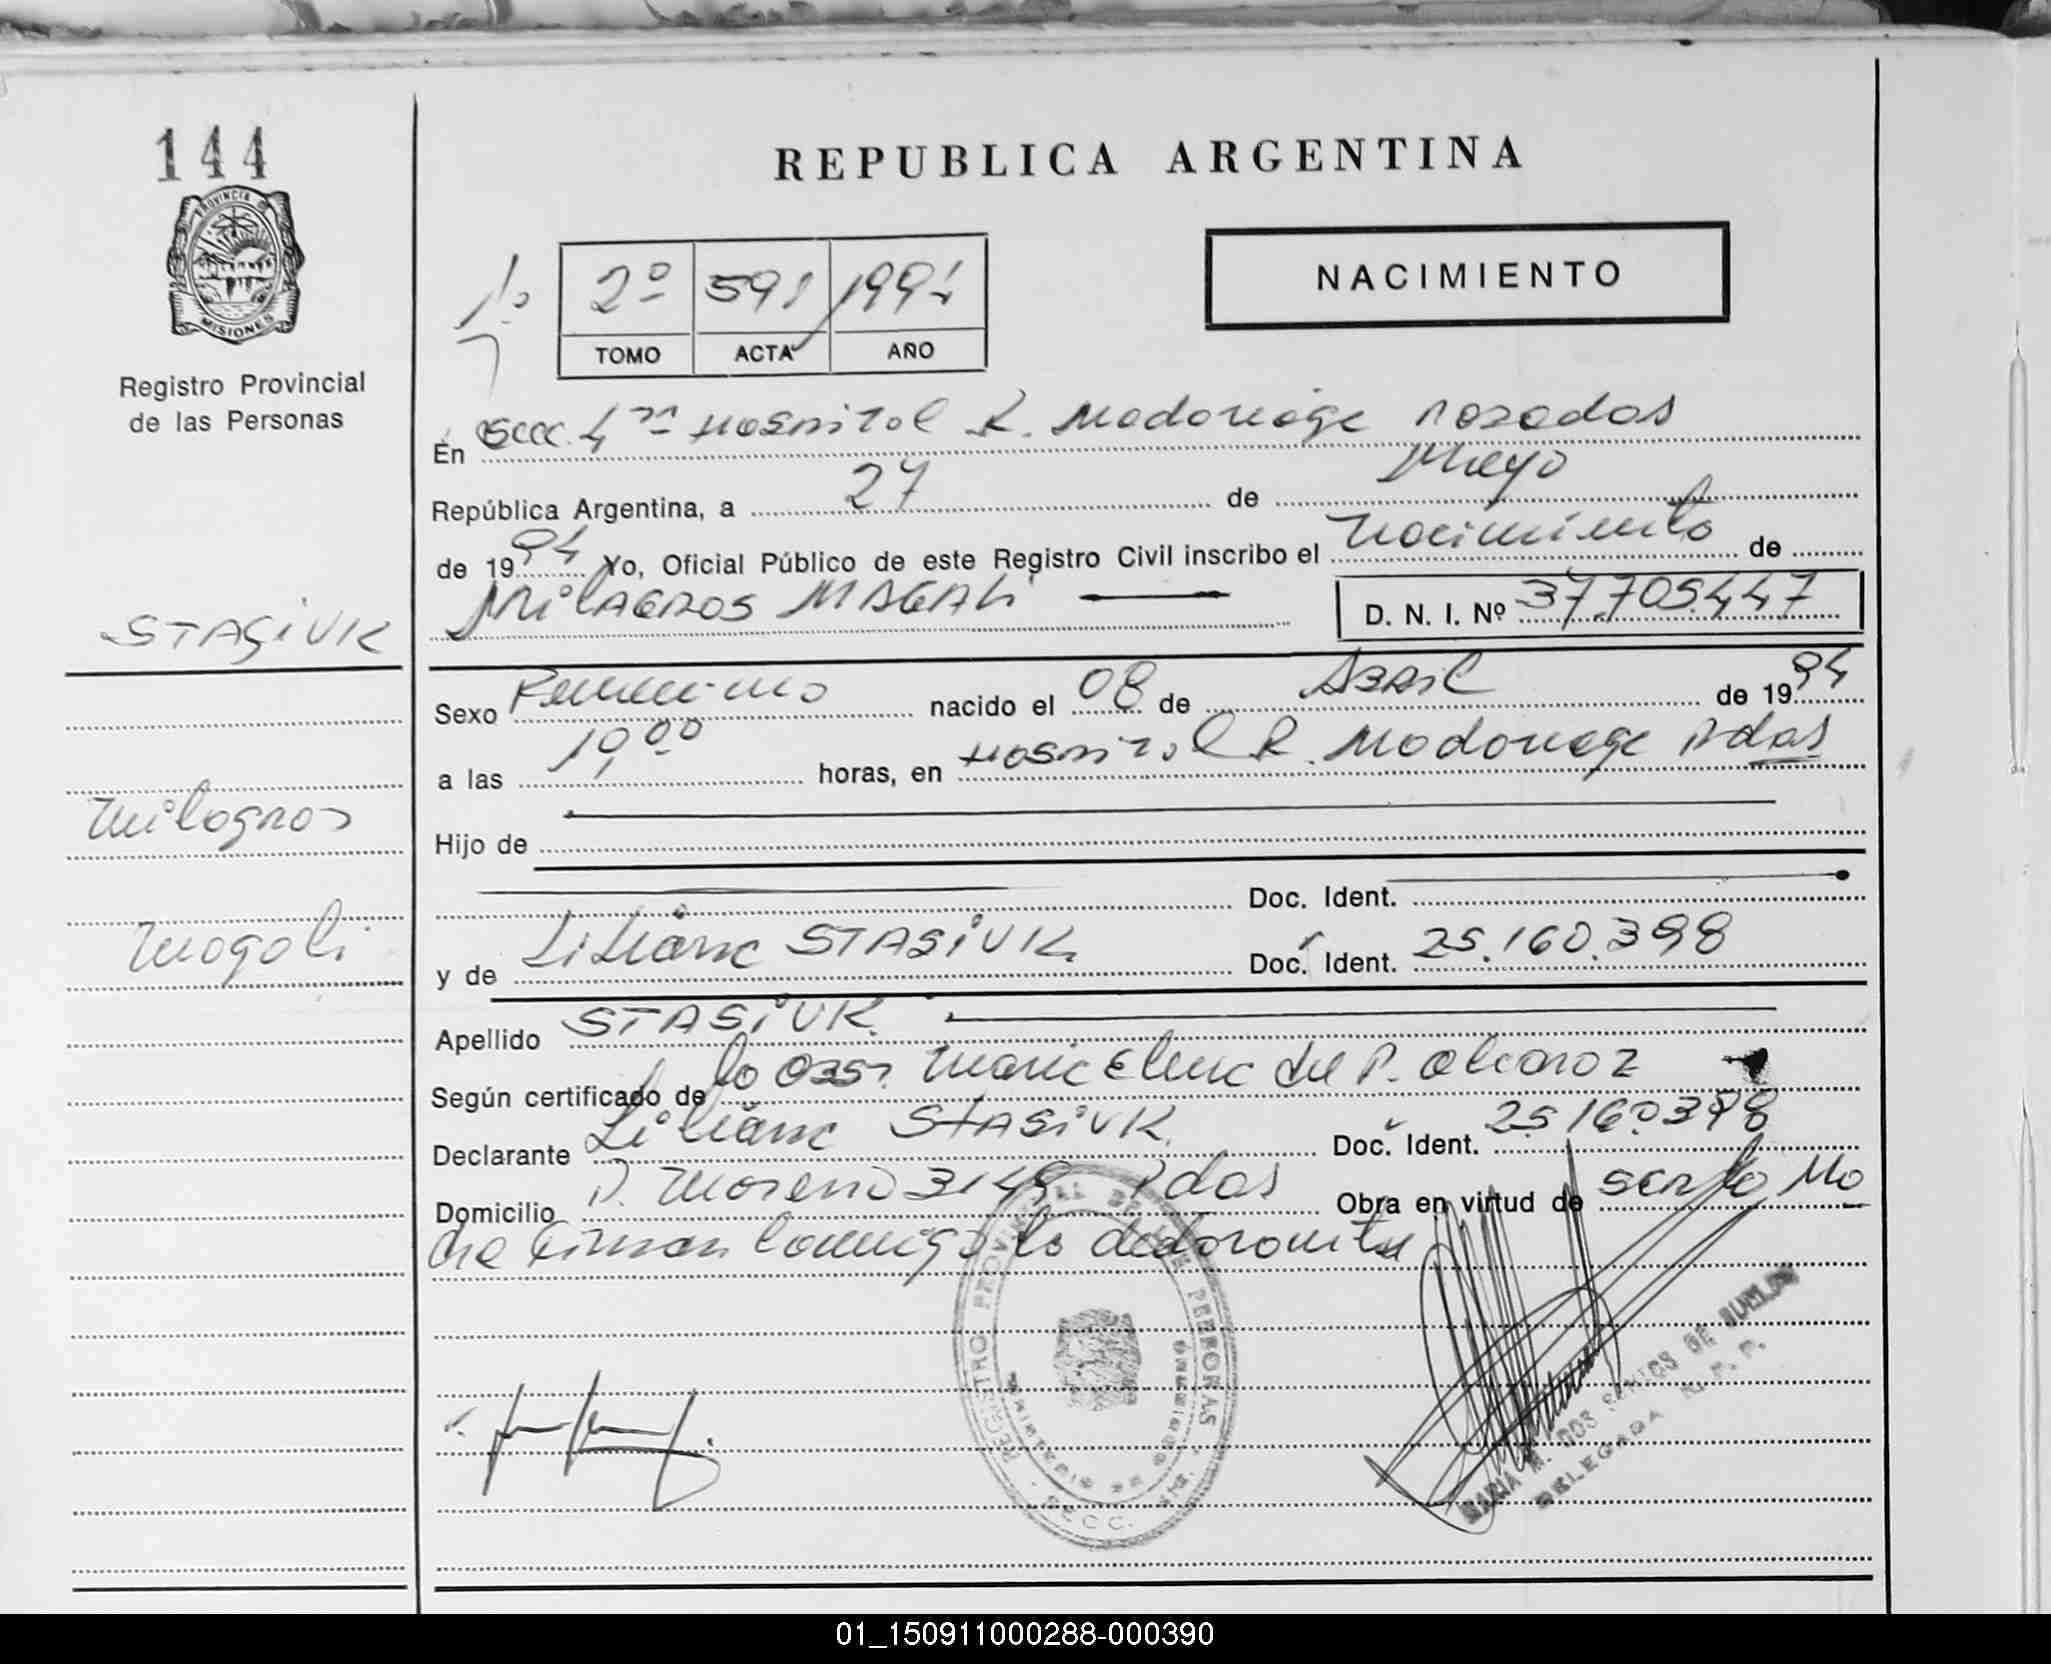 144
REPUBLICA ARGENTINA
PROVINCIA DE
MISIONES
Registro Provincial
de las Personas
1º
2º 591 1994
TOMO ACTA AÑO
NACIMIENTO
En Secc. 4ta Hospital R. Madariaga Posadas
República Argentina, a 27 de Mayo
de 1994 Yo, Oficial Público de este Registro Civil inscribo el nacimiento de
MilAGROS MAGALi D. N. I. Nº 37.705.447
STASiUK
Sexo Femenino nacido el 08 de ABRiL de 1994
a las 19,00 horas, en Hospital R. Madariaga Pdas
Milagros
Hijo de
Doc. Ident.
Magali
y de Liliana STASiUK Doc. Ident. 25.160.398
Apellido STASiUK
Según certificado de la Obst. Maria Elena del P. Alcaraz
Declarante Liliana STASiUK Doc. Ident. 25160398
Domicilio P. Moreno 3148 Pdas Obra en virtud de ser la Ma
dre Firman conmigo la declarante
REGISTRO PROVINCIAL DE LAS PERSONAS
SECC.
MARIA M. DOS SANTOS DE
DELEGADA R. P. P.
01_150911000288-000390